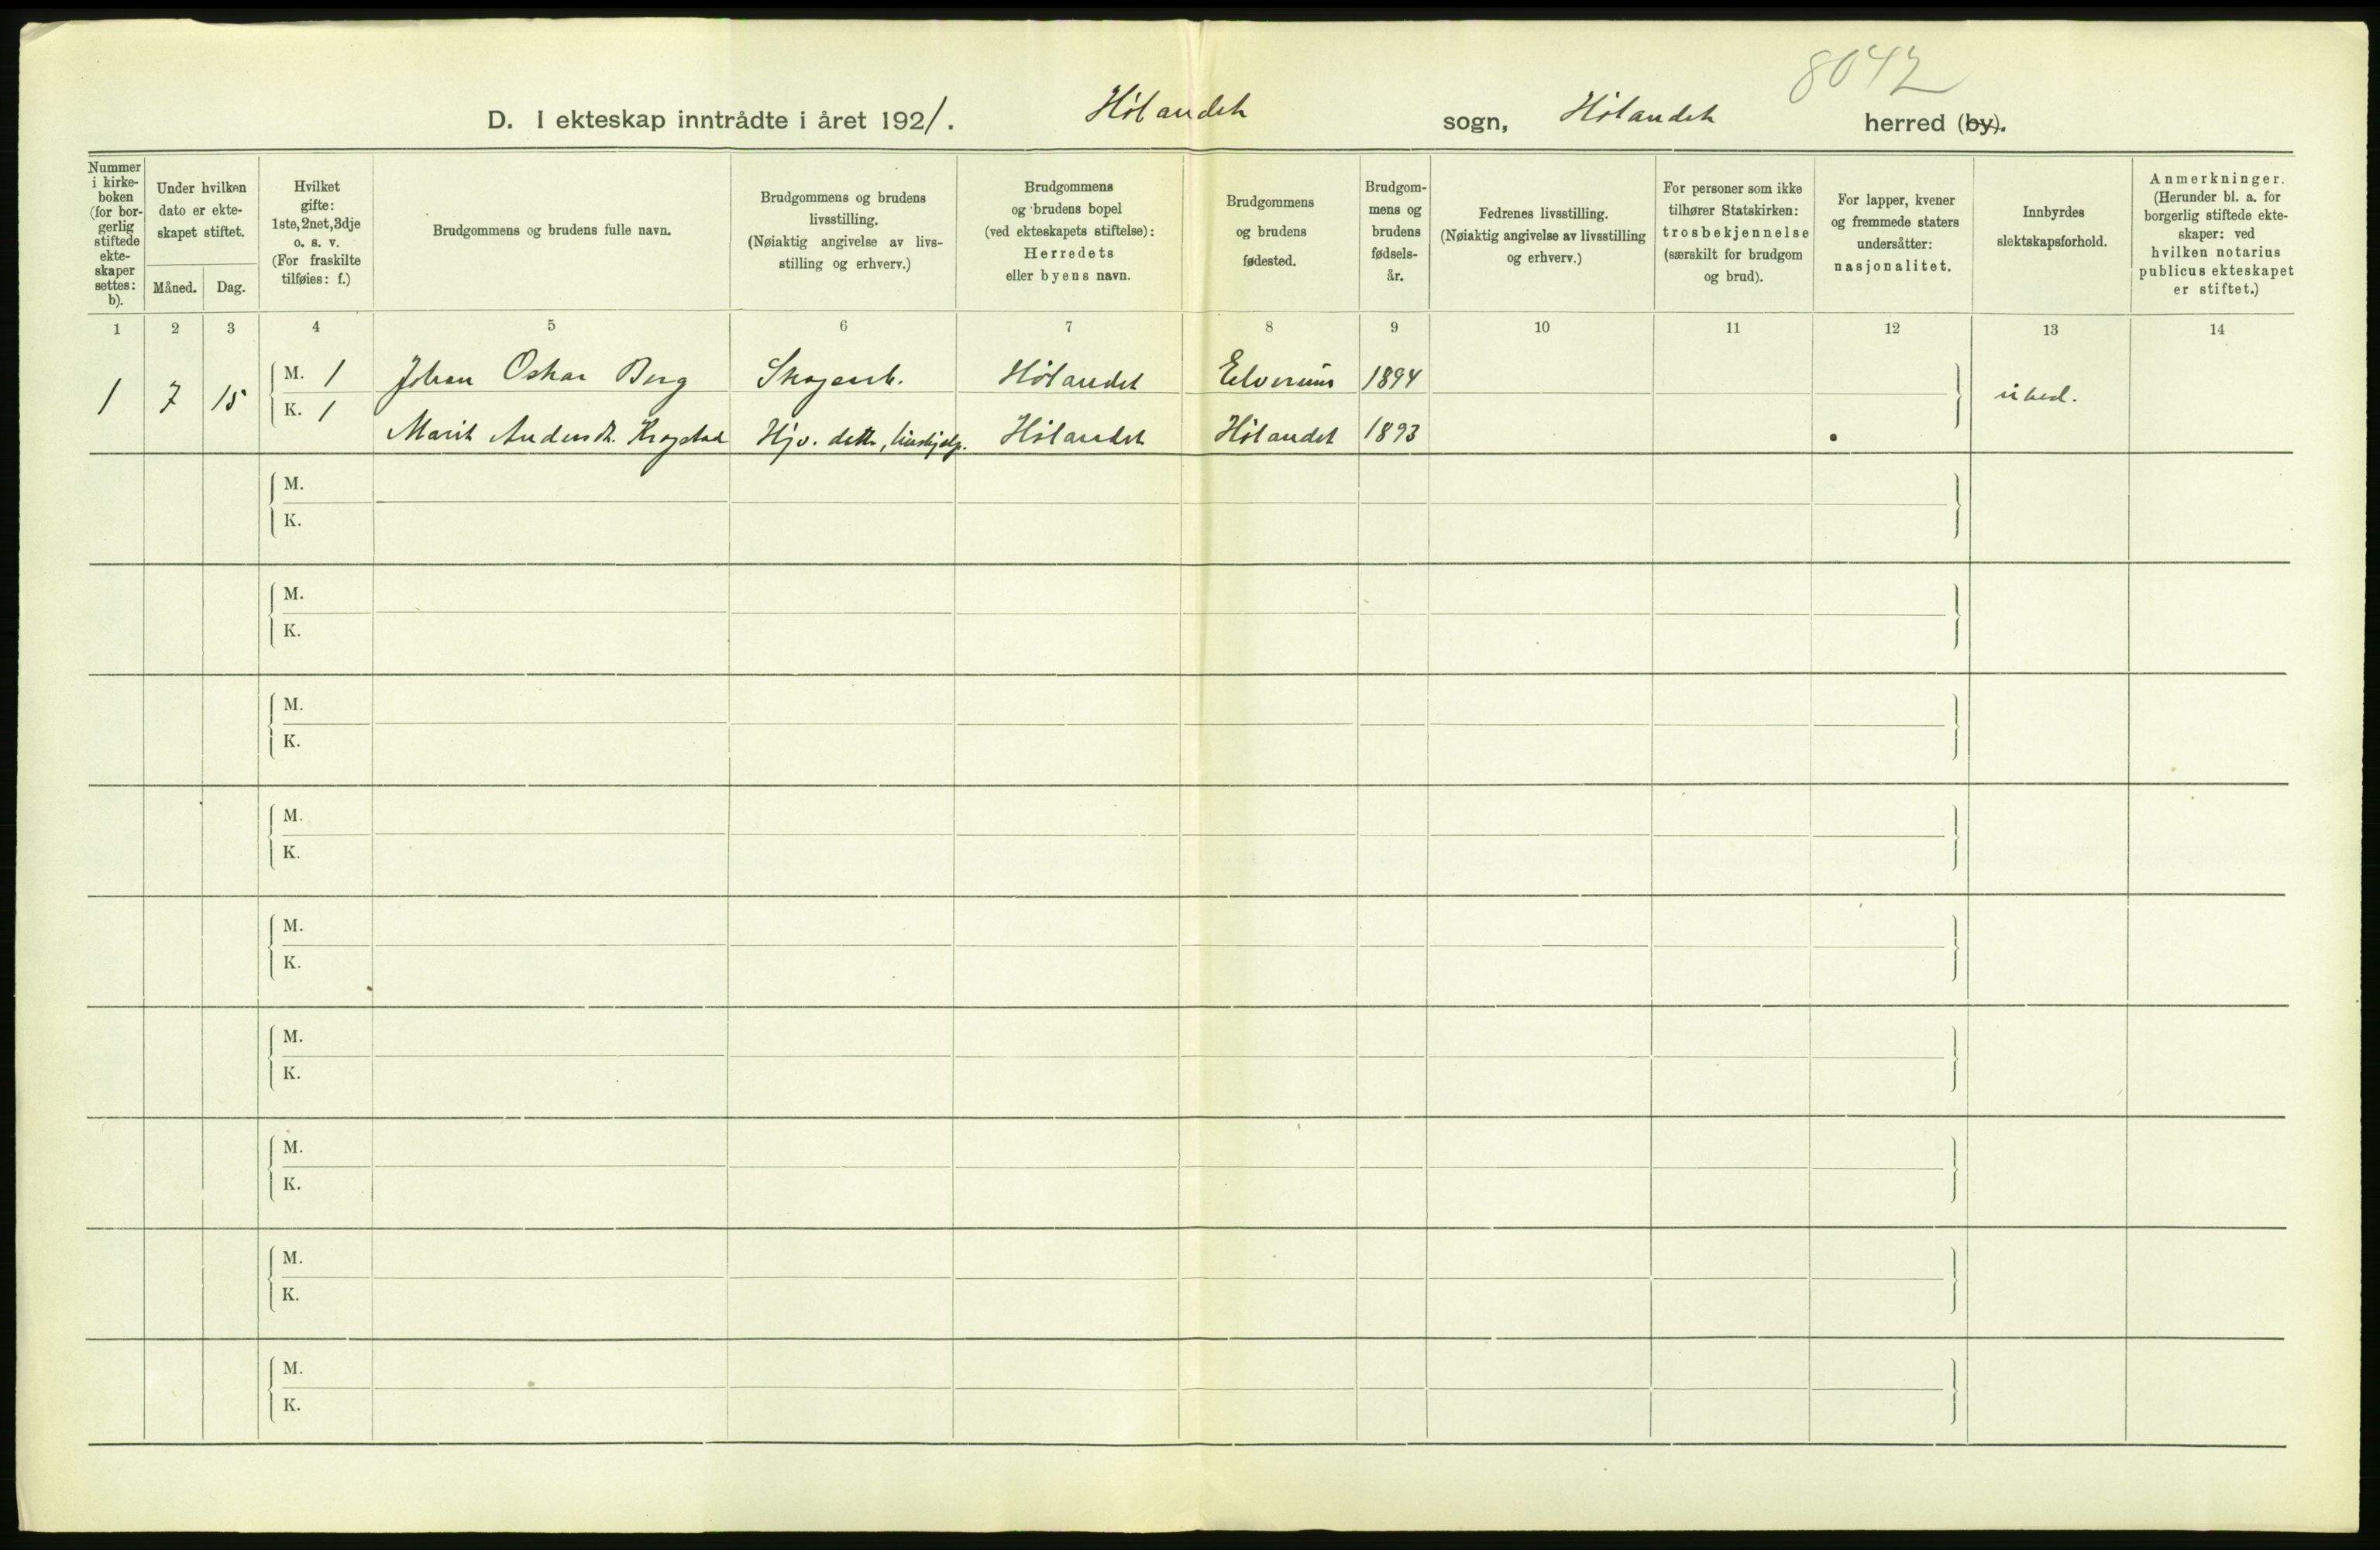 8042
D. I ekteskap inntrådte i året 1921. Hølandet sogn, Hølandet herred (by).
Nummer i kirke-boken (for bor-gerlig stiftede ekte-skaper settes: b).
Under hvilken dato er ekte-skapet stiftet.
Måned. Dag.
Hvilket gifte: 1ste, 2net, 3dje o. s. v. (For fraskilte tilføies: f.)
Brudgommens og brudens fulle navn.
Brudgommens og brudens livsstilling. (Nøiaktig angivelse av livs-stilling og erhverv.)
Brudgommens og brudens bopel (ved ekteskapets stiftelse): Herredets eller byens navn.
Brudgommens og brudens fødested.
Brudgom-mens og brudens fødsels-år.
Fedrenes livsstilling. (Nøiaktig angivelse av livsstilling og erhverv.)
For personer som ikke tilhører Statskirken: trosbekjennelse (særskilt for brudgom og brud).
For lapper, kvener og fremmede staters undersåtter: nasjonalitet.
Innbyrdes slektskapsforhold.
Anmerkninger. (Herunder bl. a. for borgerlig stiftede ekte-skaper: ved hvilken notarius publicus ekteskapet er stiftet.)
1 2 3 4 5 6 7 8 9 10 11 12 13 14
1 7 15 M. 1 Johan Oskar Berg Skogarb. Hølandet Elverum 1894 ubesl.
K. 1 Marit Andersdt. Krogstad Hjv. datter, hushjelp. Hølandet Hølandet 1893
M.
K.
M.
K.
M.
K.
M.
K.
M.
K.
M.
K.
M.
K.
M.
K.
M.
K.